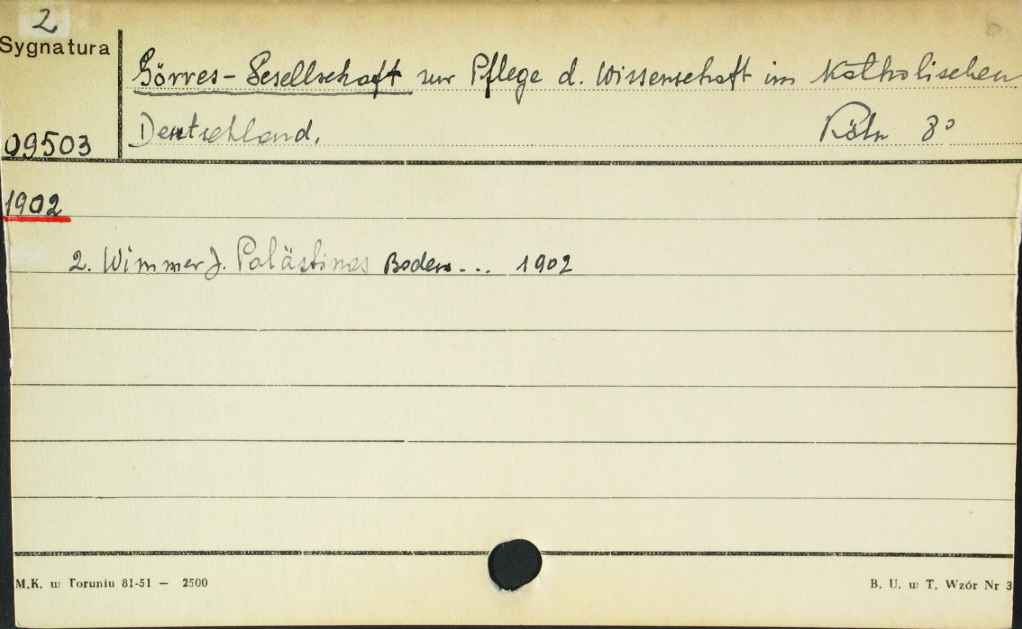 2
Sygnatura
Görres-Gesellschaft zur Pflege d. Wissenschaft im Katholischen
Deutschland. Köln 8°
09503
1902
2. Wimmer J. Palästinas Boden... 1902
M.K. w Toruniu 81-51 — 2500
B. U. w T. Wzór Nr 3